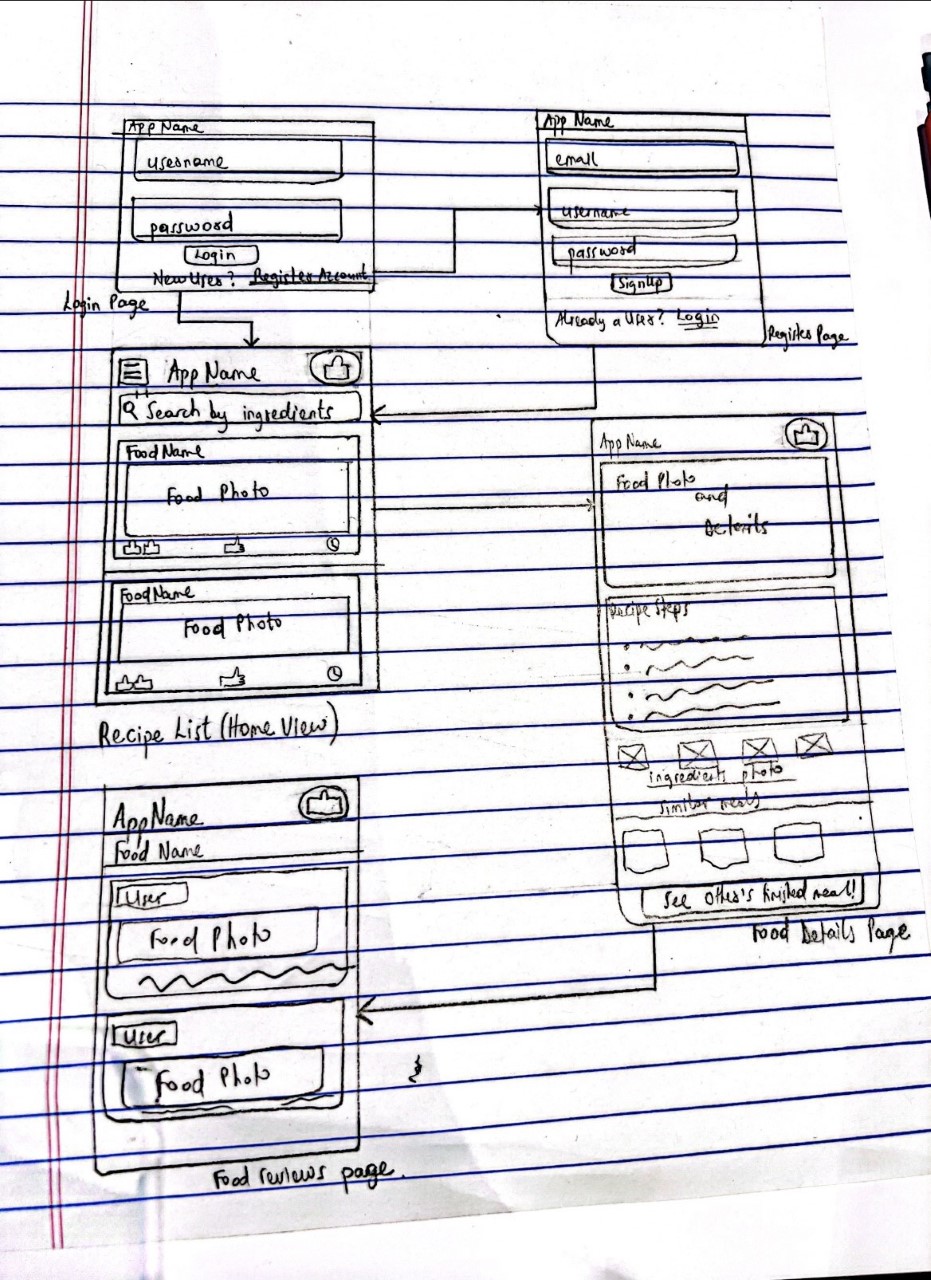 App Name
username
password
Login
New User? Register Account
Login Page
App Name
email
username
password
SignUp
Already a User? Login
Register Page
App Name
Search by ingredients
Food Name
Food Photo
Food Name
Food Photo
Recipe List (Home View)
App Name
Food Photo
and
Details
Recipe Steps
ingredients photo
similar meals
See Other's finished meal!
Food Details Page
App Name
Food Name
User
Food Photo
User
Food Photo
Food reviews page.